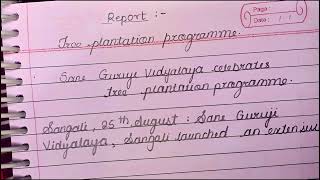 Report :-
Page :
Date : / /
Tree plantation programme.
Sane Guruji Vidyalaya celebrates
tree plantation programme.
Sangali, 25th August : Sane Guruji
Vidyalaya, Sangali launched an extensive